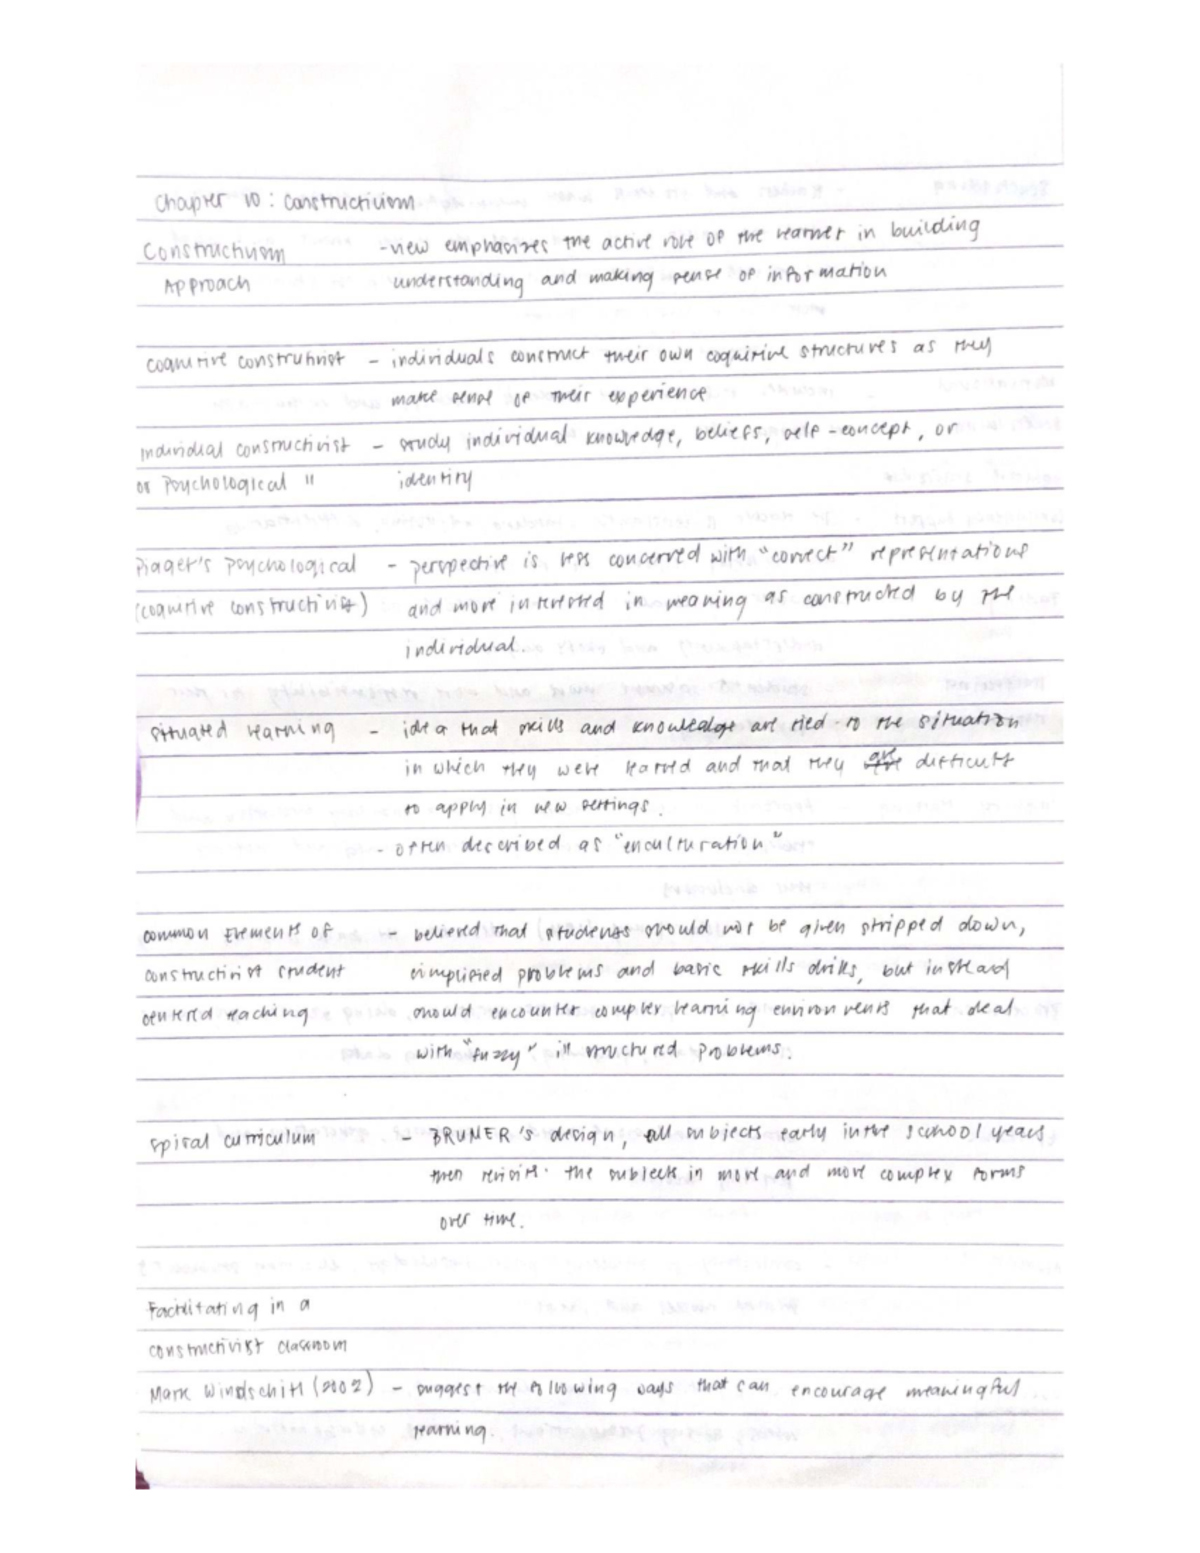 Chapter 10 : Constructivism
Constructivism -view emphasizes the active role of the learner in building
Approach understanding and making sense of information
cognitive construtivist - individuals construct their own cognitive structures as they
make sense of their experience
Individual constructivist - study individual knowledge, beliefs, self-concept, or
or Psychological " identity
Piaget's Psychological - perspective is less concerved with "correct" representations
(cognitive constructivist) and more interested in meaning as constructed by the
individual.
situated learning - idea that skills and knowledge are tied to the situation
in which they were learned and that they are difficult
to apply in new settings.
- often described as "enculturation"
common Elements of - believed that students should not be given stripped down,
constructivist student simplified problems and basic skills drills, but instead
centered teaching should encounter complex learning environments that deal
with "fuzzy" ill structured problems.
spiral curriculum - BRUNER's design, all subjects early in the school years
then revisits the subjects in more and more complex forms
over time.
Facilitating in a
constructivist classroom
Mark Windschitl (2002) - suggest the following ways that can encourage meaningful
learning.